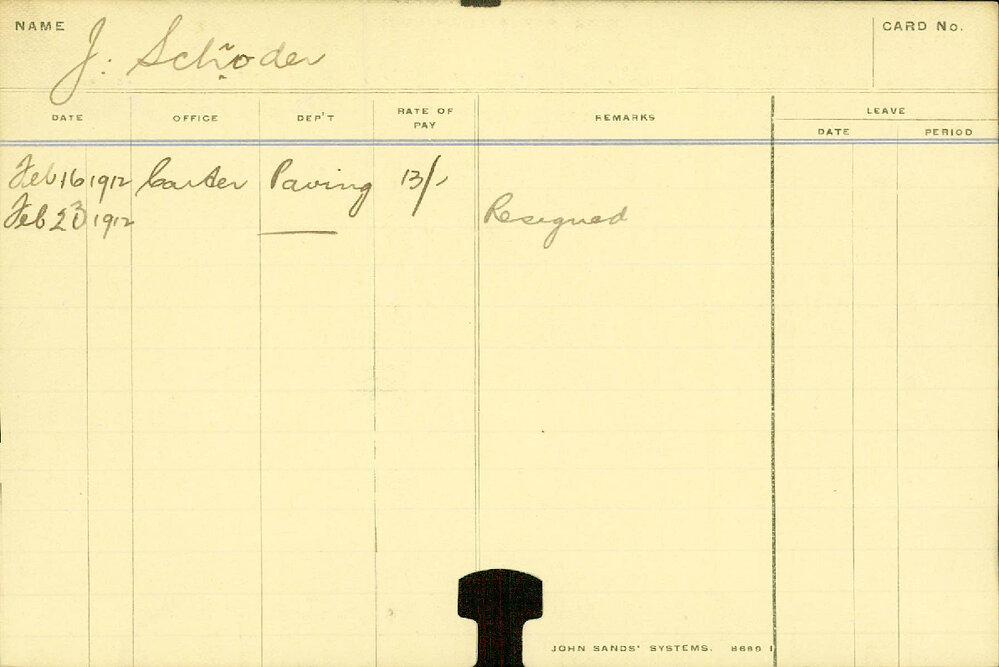 NAME J. Schroder CARD No.
DATE OFFICE DEP'T RATE OF PAY REMARKS LEAVE
DATE PERIOD
Feb 16 1912 Carter Paving 13/-
Feb 23 1912 Resigned
JOHN SANDS' SYSTEMS. 8689